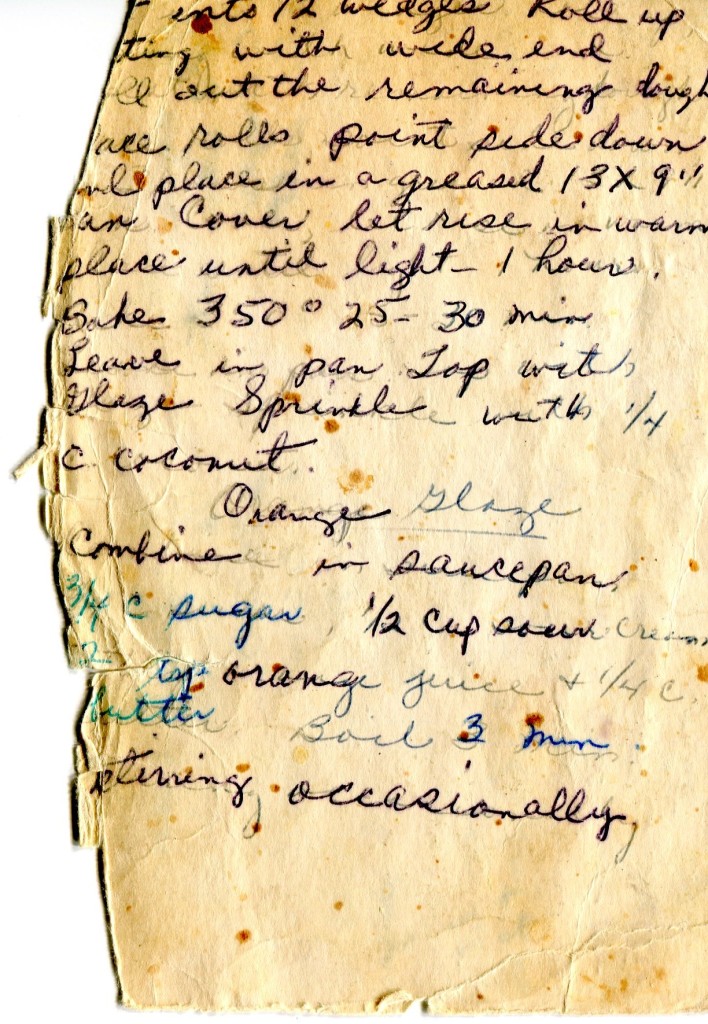 t into 12 wedges Roll up
ting with wide end
ll out the remaining dough
ace rolls point side down
nd place in a greased 13 X 9"
an Cover let rise in warm
place until light - 1 hour.
Bake 350° 25 - 30 min
Leave in pan Top with
Glaze Sprinkle with 1/4
c coconut.
Orange Glaze
Combine in saucepan,
3/4 c sugar, 1/2 cup sour cream
2 tsp orange juice + 1/4 c.
butter Boil 3 min.
stirring occasionally,